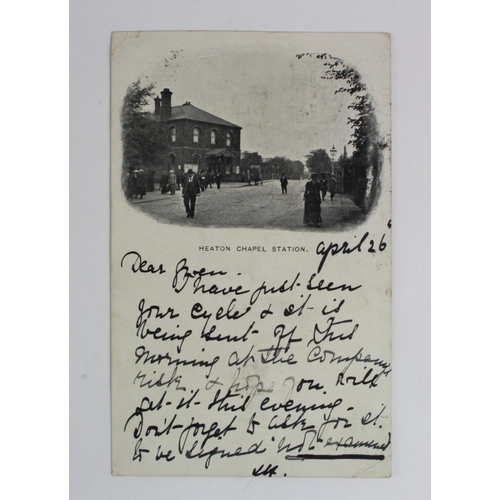 HEATON CHAPEL STATION.
April 26
Dear Gwen.
I have just seen
your cycle & it is
being sent off this
morning at the Company's
risk, & hope you will
get it this evening.
Don't forget to ask for it
to be signed "not examined"